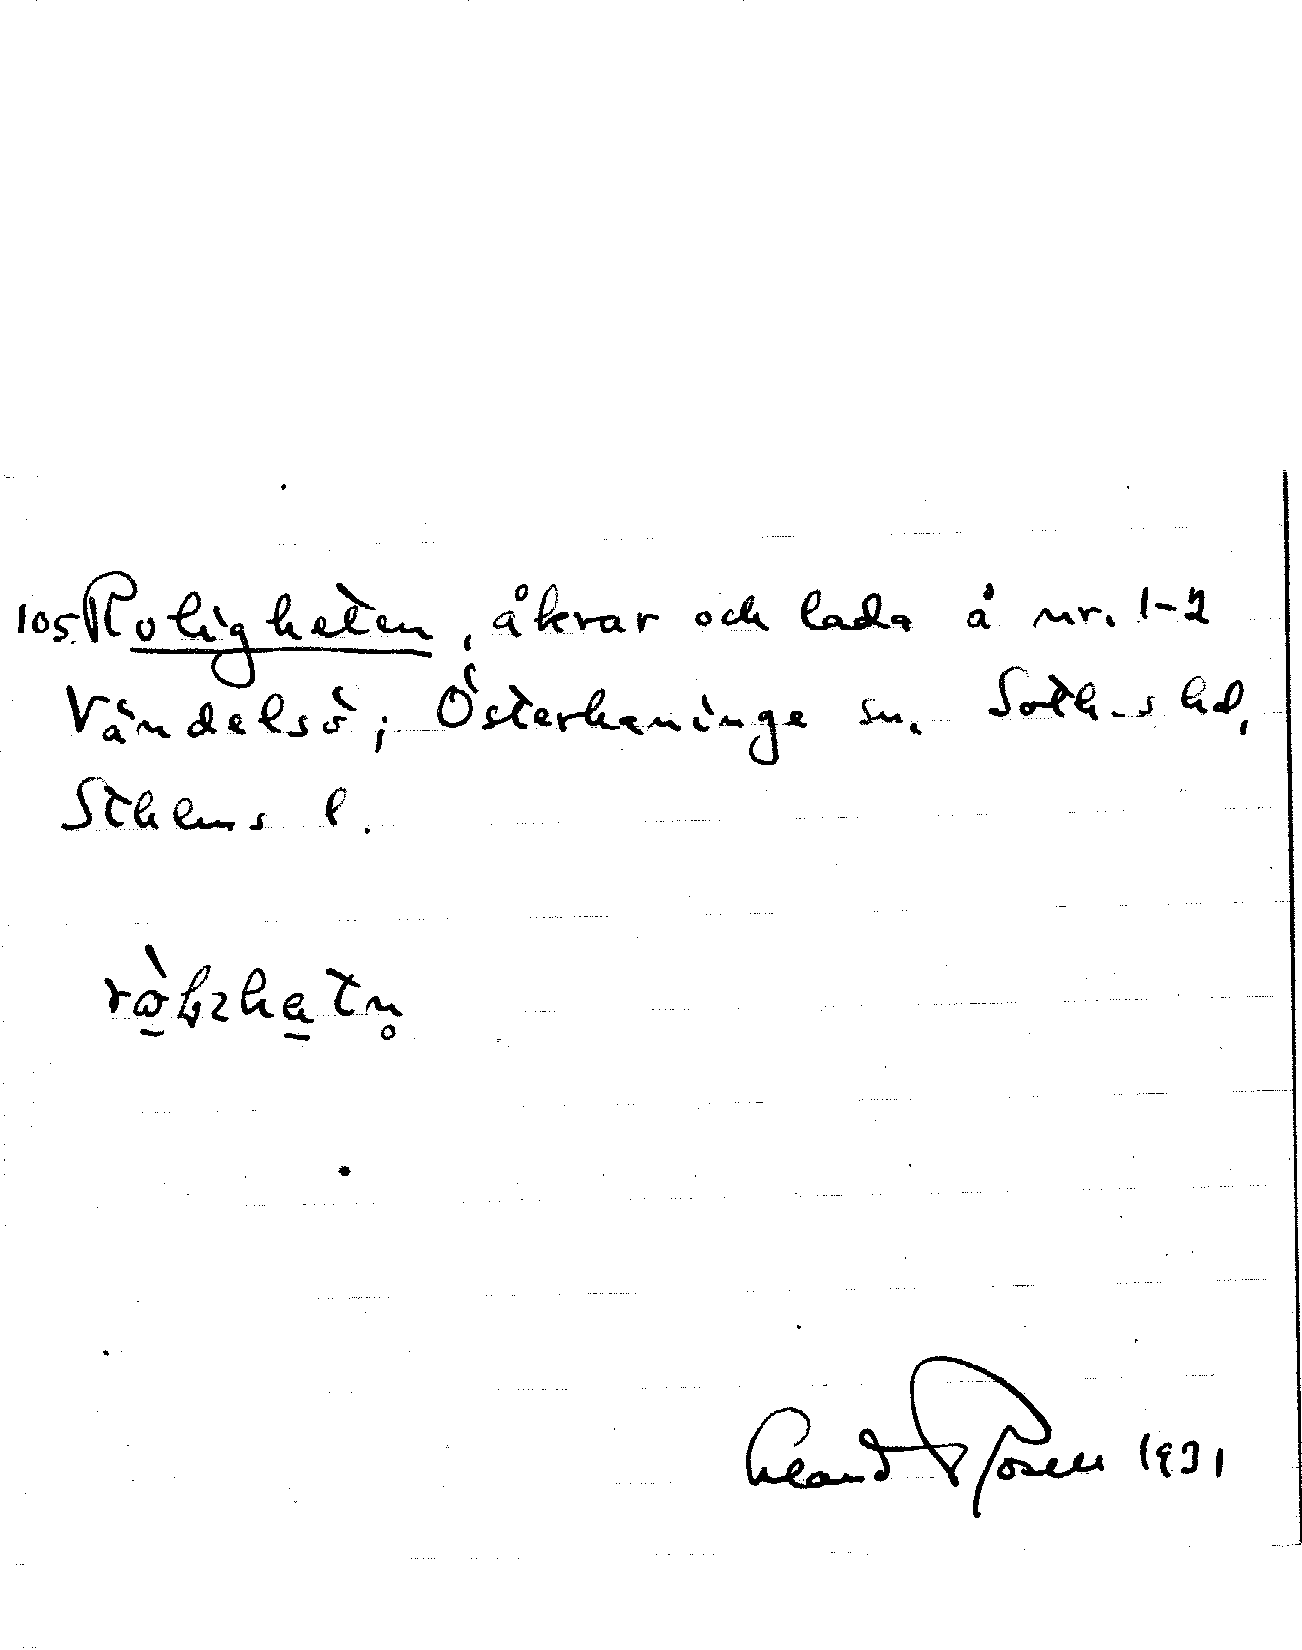 105. Roligheten, åkrar och lada å nr. 1-2
Vändelsö; Österhaninge sn. Soth-s hd,
Sthlms l.
Rosell 1931